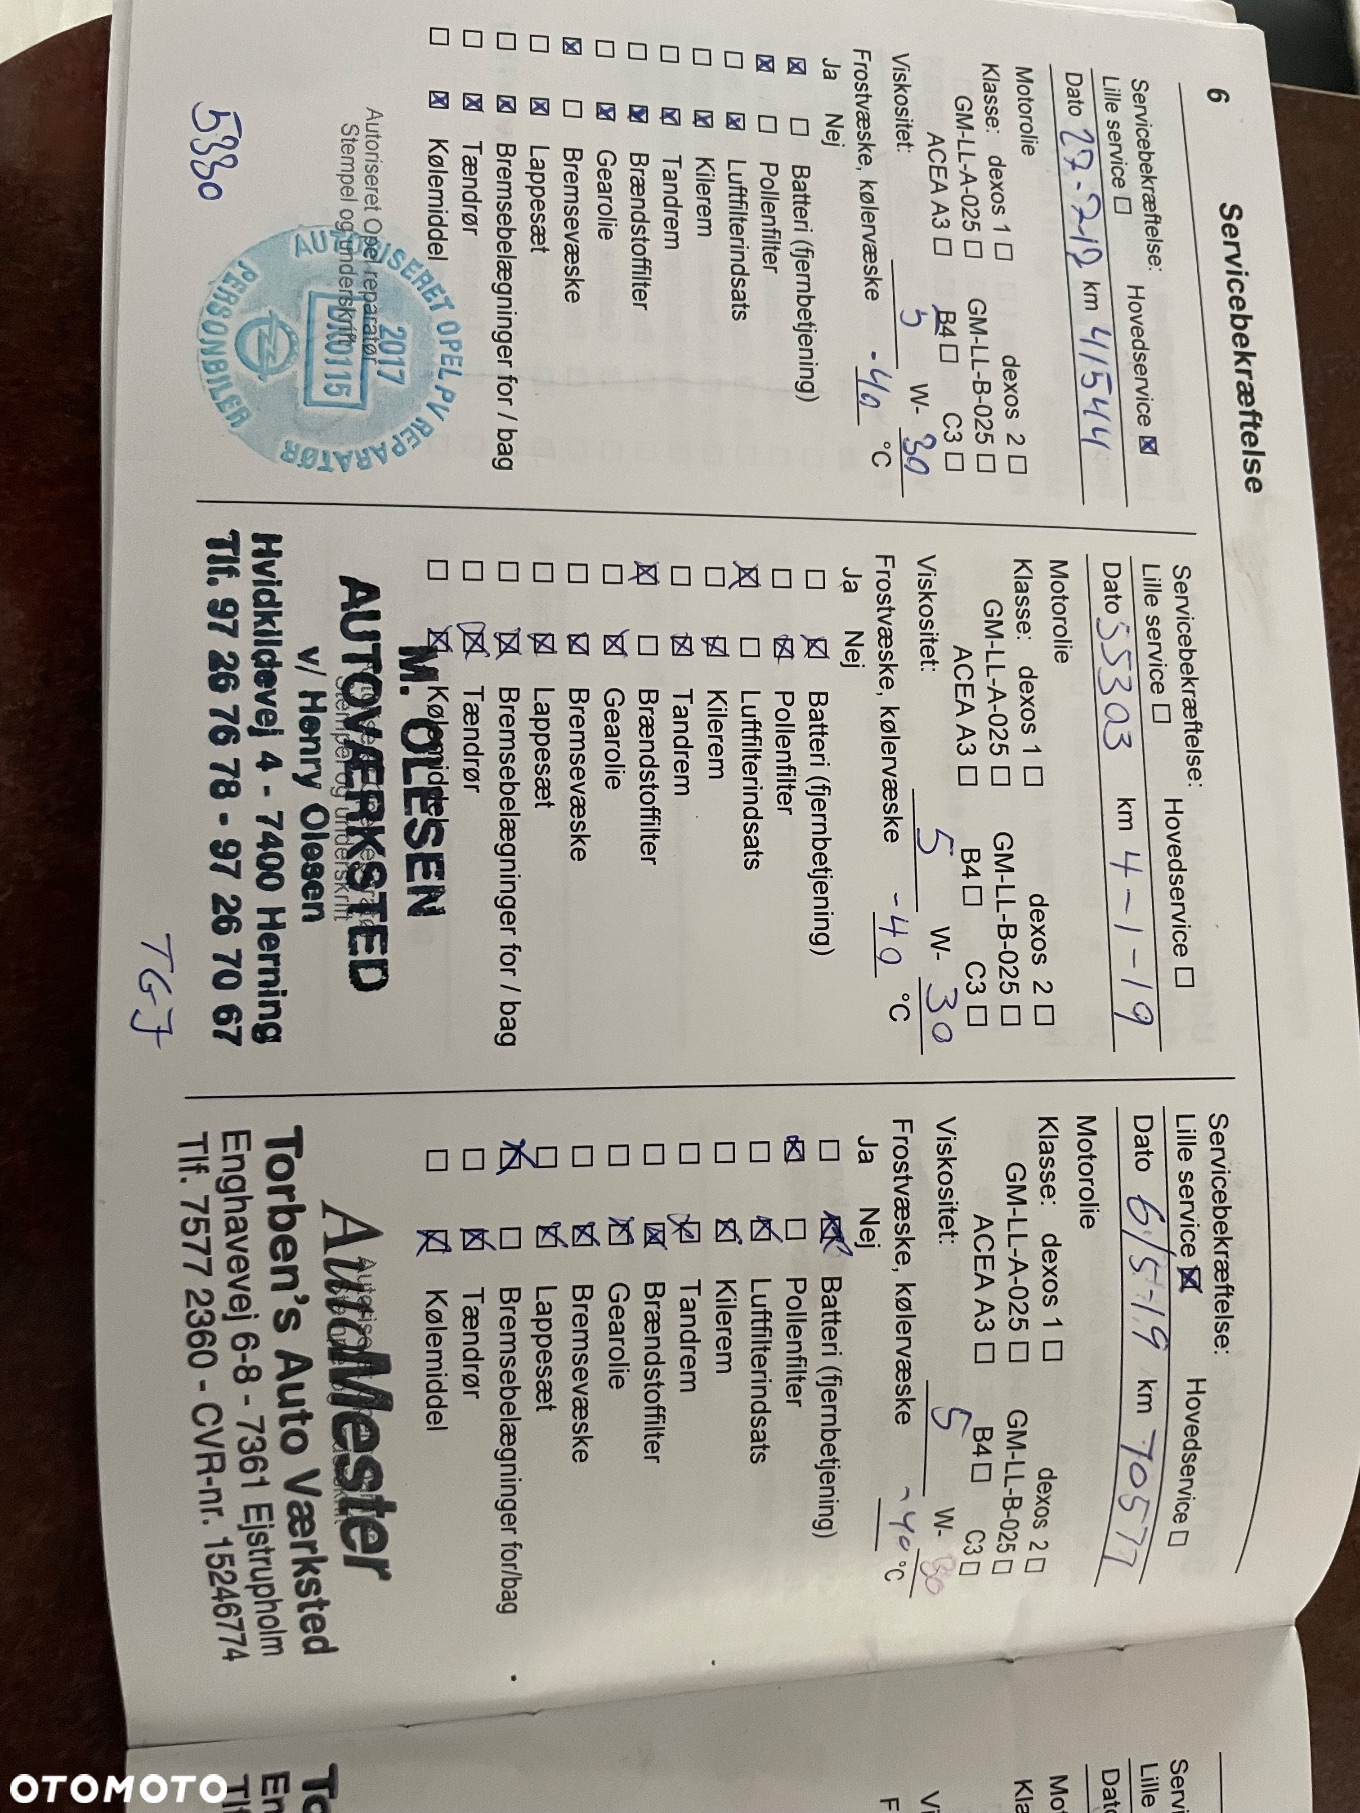 6
Servicebekræftelse
Servicebekræftelse:
Lille service ☐ Hovedservice ☒
Dato 27-2-19 km 41544
Motorolie
Klasse: dexos 1 ☐ dexos 2 ☐
GM-LL-A-025 ☐ GM-LL-B-025 ☐
ACEA A3 ☐ B4 ☐ C3 ☐
Viskositet: 5 W- 30
Frostvæske, kølervæske -40 °C
Ja Nej
☒ ☐ Batteri (fjernbetjening)
☒ ☐ Pollenfilter
☐ ☒ Luftfilterindsats
☐ ☒ Kilerem
☐ ☒ Tandrem
☐ ☒ Brændstoffilter
☐ ☒ Gearolie
☒ ☐ Bremsevæske
☐ ☒ Lappesæt
☐ ☒ Bremsebelægninger for / bag
☐ ☒ Tændrør
☐ ☒ Kølemiddel
Autoriseret Opel reparatør
Stempel og underskrift
AUTORISERET OPEL PV REPARATØR
2017
DK0115
PERSONBILER
5930
Servicebekræftelse:
Lille service ☐ Hovedservice ☐
Dato 55303 km 4-1-19
Motorolie
Klasse: dexos 1 ☐ dexos 2 ☐
GM-LL-A-025 ☐ GM-LL-B-025 ☐
ACEA A3 ☐ B4 ☐ C3 ☐
Viskositet: 5 W- 30
Frostvæske, kølervæske -40 °C
Ja Nej
☐ ☒ Batteri (fjernbetjening)
☐ ☒ Pollenfilter
☒ ☐ Luftfilterindsats
☐ ☒ Kilerem
☐ ☒ Tandrem
☒ ☐ Brændstoffilter
☐ ☒ Gearolie
☐ ☒ Bremsevæske
☐ ☒ Lappesæt
☐ ☒ Bremsebelægninger for / bag
☐ ☒ Tændrør
☐ ☒ Kølemiddel
M. OLESEN
AUTOVÆRKSTED
v/ Henry Olesen
Hvidkildevej 4 - 7400 Herning
Tlf. 97 26 76 78 - 97 26 70 67
TGJ
Servicebekræftelse:
Lille service ☒ Hovedservice ☐
Dato 6/5-19 km 70577
Motorolie
Klasse: dexos 1 ☐ dexos 2 ☐
GM-LL-A-025 ☐ GM-LL-B-025 ☐
ACEA A3 ☐ B4 ☐ C3 ☐
Viskositet: 5 W- 30
Frostvæske, kølervæske -40 °C
Ja Nej
☐ ☒ Batteri (fjernbetjening)
☒ ☐ Pollenfilter
☐ ☒ Luftfilterindsats
☐ ☒ Kilerem
☐ ☒ Tandrem
☐ ☒ Brændstoffilter
☐ ☒ Gearolie
☐ ☒ Bremsevæske
☐ ☒ Lappesæt
☒ ☐ Bremsebelægninger for/bag
☐ ☒ Tændrør
☐ ☒ Kølemiddel
AutoMester
Torben's Auto Værksted
Enghavevej 6-8 - 7361 Ejstrupholm
Tlf. 7577 2360 - CVR-nr. 15246774
OTOMOTO